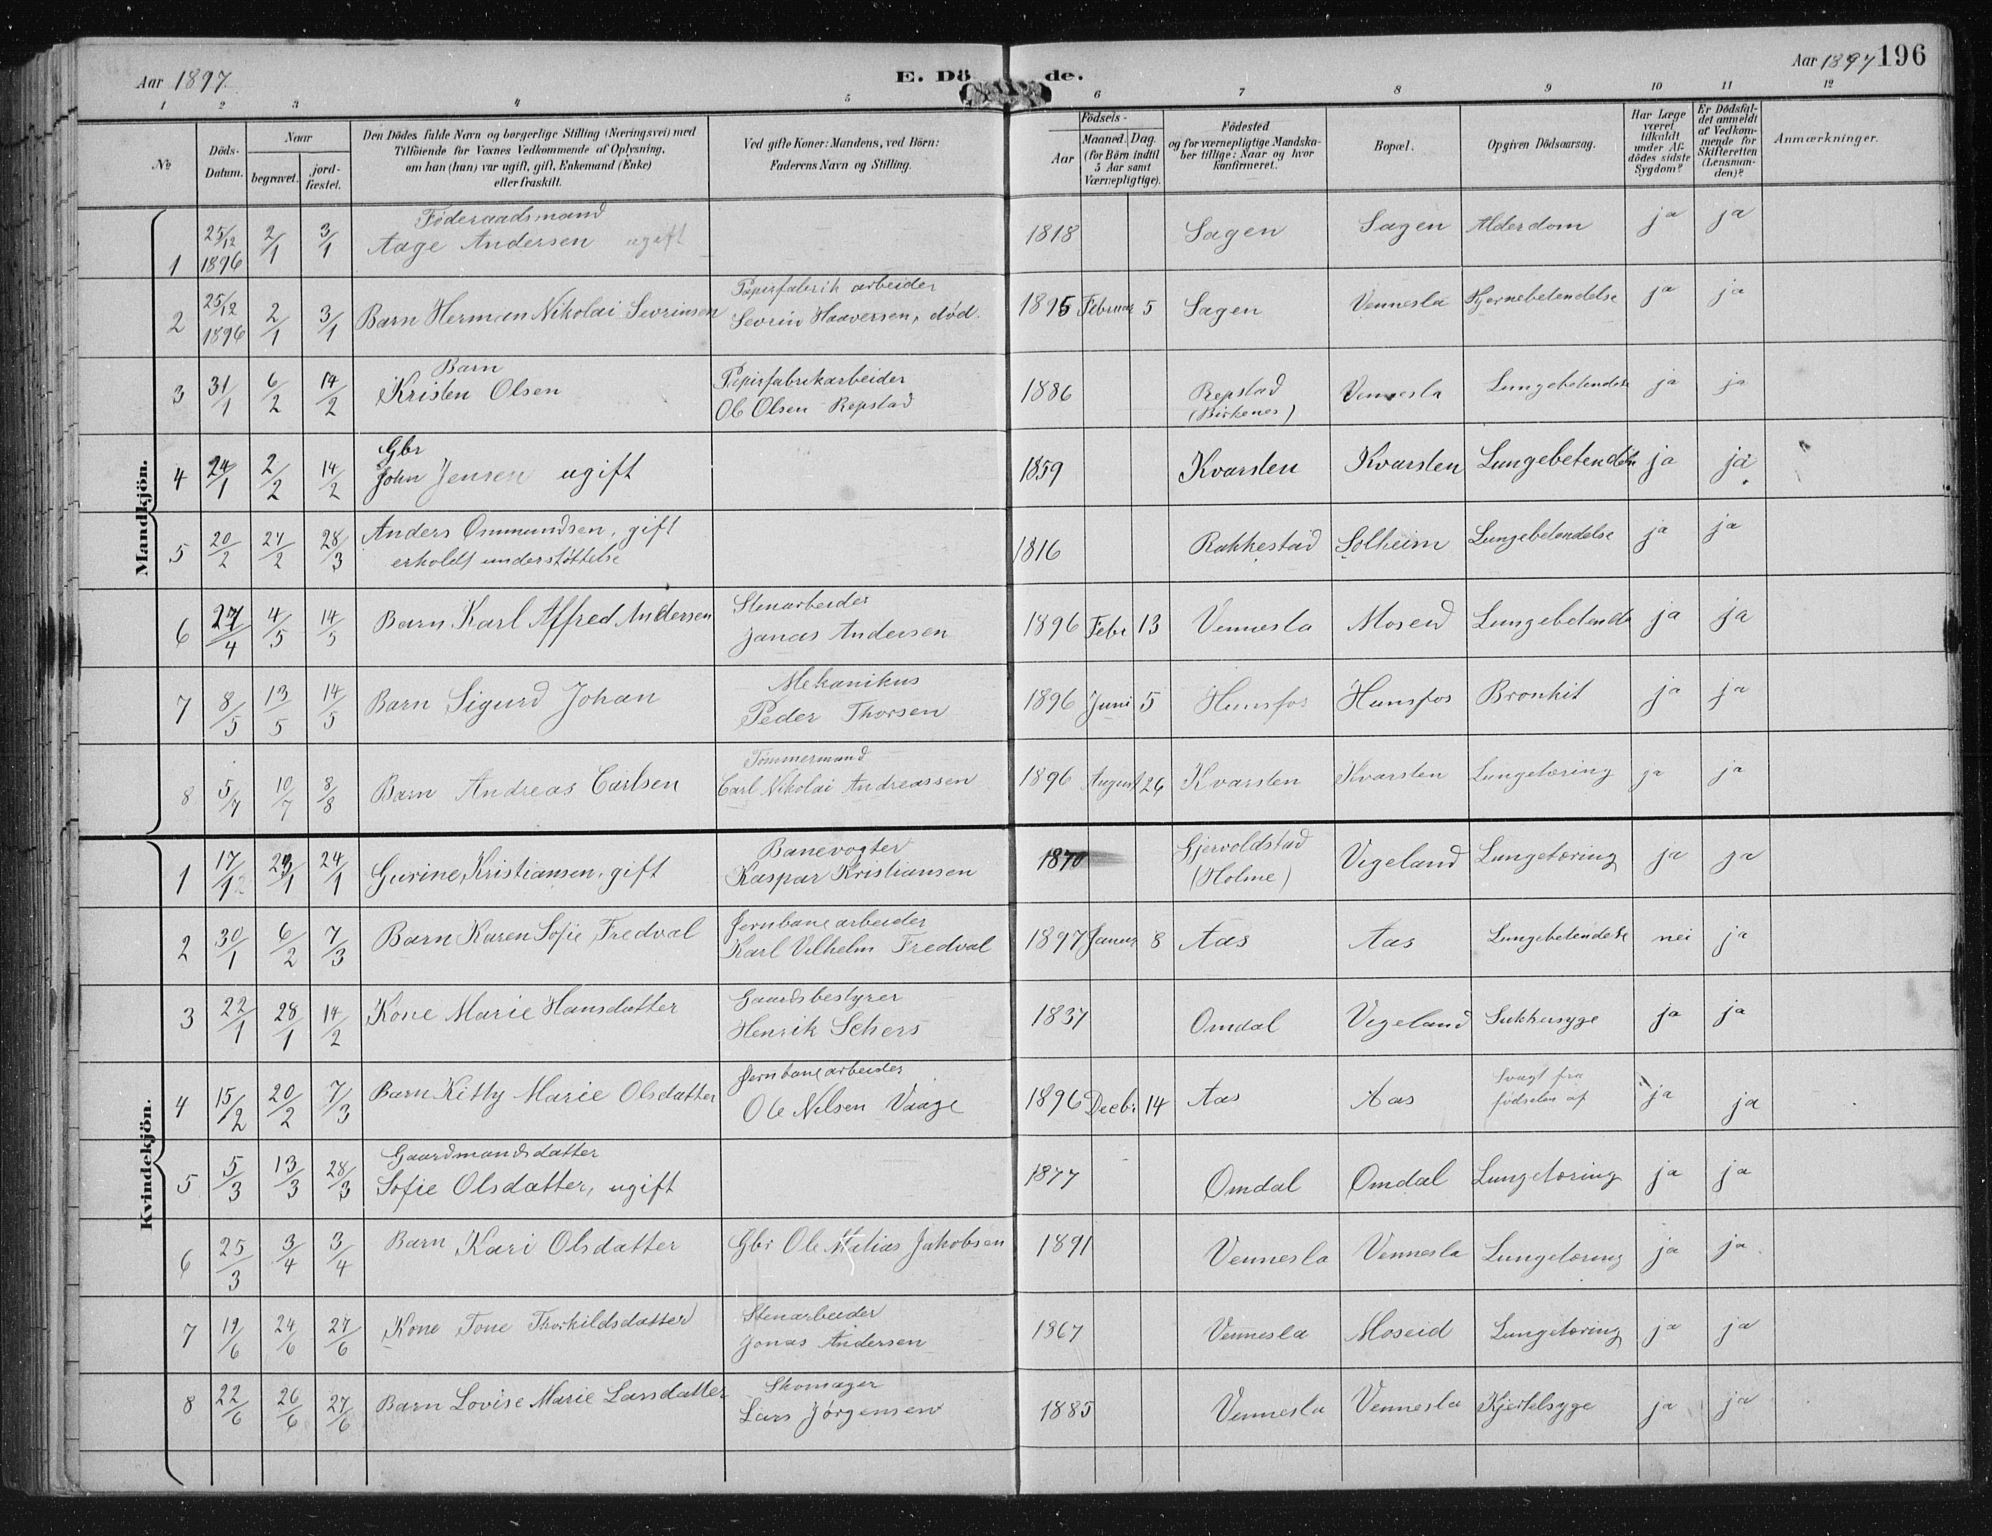 Aar 1897.
E. Dö de.
Aar 1897 196
1 2 3 4 5 6 7 8 9 10 11 12
№
Döds-Datum.
Naar
begravet.
jord-fæstet.
Den Dödes fulde Navn og borgerlige Stilling (Næringsvei) med
Tilföiende for Voxnes Vedkommende af Oplysning,
om han (hun) var ugift, gift, Enkemand (Enke)
eller fraskilt.
Ved gifte Koner: Mandens, ved Börn:
Faderens Navn og Stilling.
Födsels-
Aar
Maaned. Dag.
(for Börn indtil
5 Aar samt
Værnepligtige).
Födested
og for værnepligtige Mandska-
ber tillige: Naar og hvor
konfirmeret.
Bopæl.
Opgiven Dödsaarsag.
Har Læge
været
tilkaldt
under Af-
dödes sidste
Sygdom?
Er Dödsfal-
det anmeldt
af Vedkom-
mende for
Skifteretten
(Lensman-
den)?
Anmærkninger.
Mandkjön.
1 25/12 1896 2/1 3/1 Føderaadsmand
Aage Andersen ugift 1818 Sagen Sagen Alderdom ja ja
2 25/12 1896 2/1 3/1 Barn Herman Nikolai Sevrinsen Papirfabrik arbeider
Sevrin Haaversen, død. 1895 Februar 5 Sagen Vennesla Hjernebetendelse ja ja
3 31/1 6/2 14/2 Barn
Kristen Olsen Papirfabrikarbeider
Ole Olsen Repstad 1886 Repstad
(Birkenes) Vennesla Lungebetendelse ja ja
4 24/1 2/2 14/2 Gbr
John Jensen ugift 1859 Kvarsten Kvarsten Lungebetendelse ja ja
5 20/2 27/2 28/3 Anders Ommundsen, gift
erholdt understøttelse 1816 Rakkestad Solheim Lungebetendelse ja ja
6 27/4 4/5 14/5 Barn Karl Alfred Andersen Stenarbeider
Jonas Andersen 1896 Febr 13 Vennesla Moseid Lungebetende ja ja
7 8/5 13/5 14/5 Barn Sigurd Johan Mekanikus
Peder Thorsen 1896 Juni 5 Hunsfos Hunsfos Bronkit ja ja
8 5/7 10/7 8/8 Barn Andreas Carlsen Tømmermand
Carl Nikolai Andreassen 1896 August 26 Kvarsten Kvarsten Lungetæring ja ja
Kvindekjön.
1 17/12 23/1 24/1 Gurine Kristiansen, gift Banevogter
Kaspar Kristiansen 1870 Gjervoldstad
(Holme) Vigeland Lungetæring ja ja
2 30/1 6/2 7/3 Barn Karen Sofie Fredval Jernbanearbeider
Karl Vilhelm Fredval 1897 Januar 8 Aas Aas Lungebetendelse nei ja
3 22/1 28/1 14/2 Kone Marie Hansdatter Gaardsbestyrer
Henrik 1837 Omdal Vigeland Sukkersyge ja ja
4 15/2 20/2 7/3 Barn Kitty Marie Olsdatter Jernbanearbeider
Ole Nilsen Vaage 1896 Decbr 14 Aas Aas Svagt fra
fødselen af ja ja
5 5/3 13/3 28/3 Gaardmandsdatter
Sofie Olsdatter, ugift 1877 Omdal Omdal Lungetæring ja ja
6 25/3 3/4 3/4 Barn Kari Olsdatter Gbr Ole Matias Jakobsen 1891 Vennesla Vennesla Lungetæring ja ja
7 19/6 24/6 27/6 Kone Tone Thorkildsdatter Stenarbeider
Jonas Andersen 1867 Vennesla Moseid Lungetæring ja ja
8 22/6 26/6 27/6 Barn Lovise Marie Larsdatter Skomager
Lars Jørgensen 1885 Vennesla Vennesla Kjertelsyge ja ja